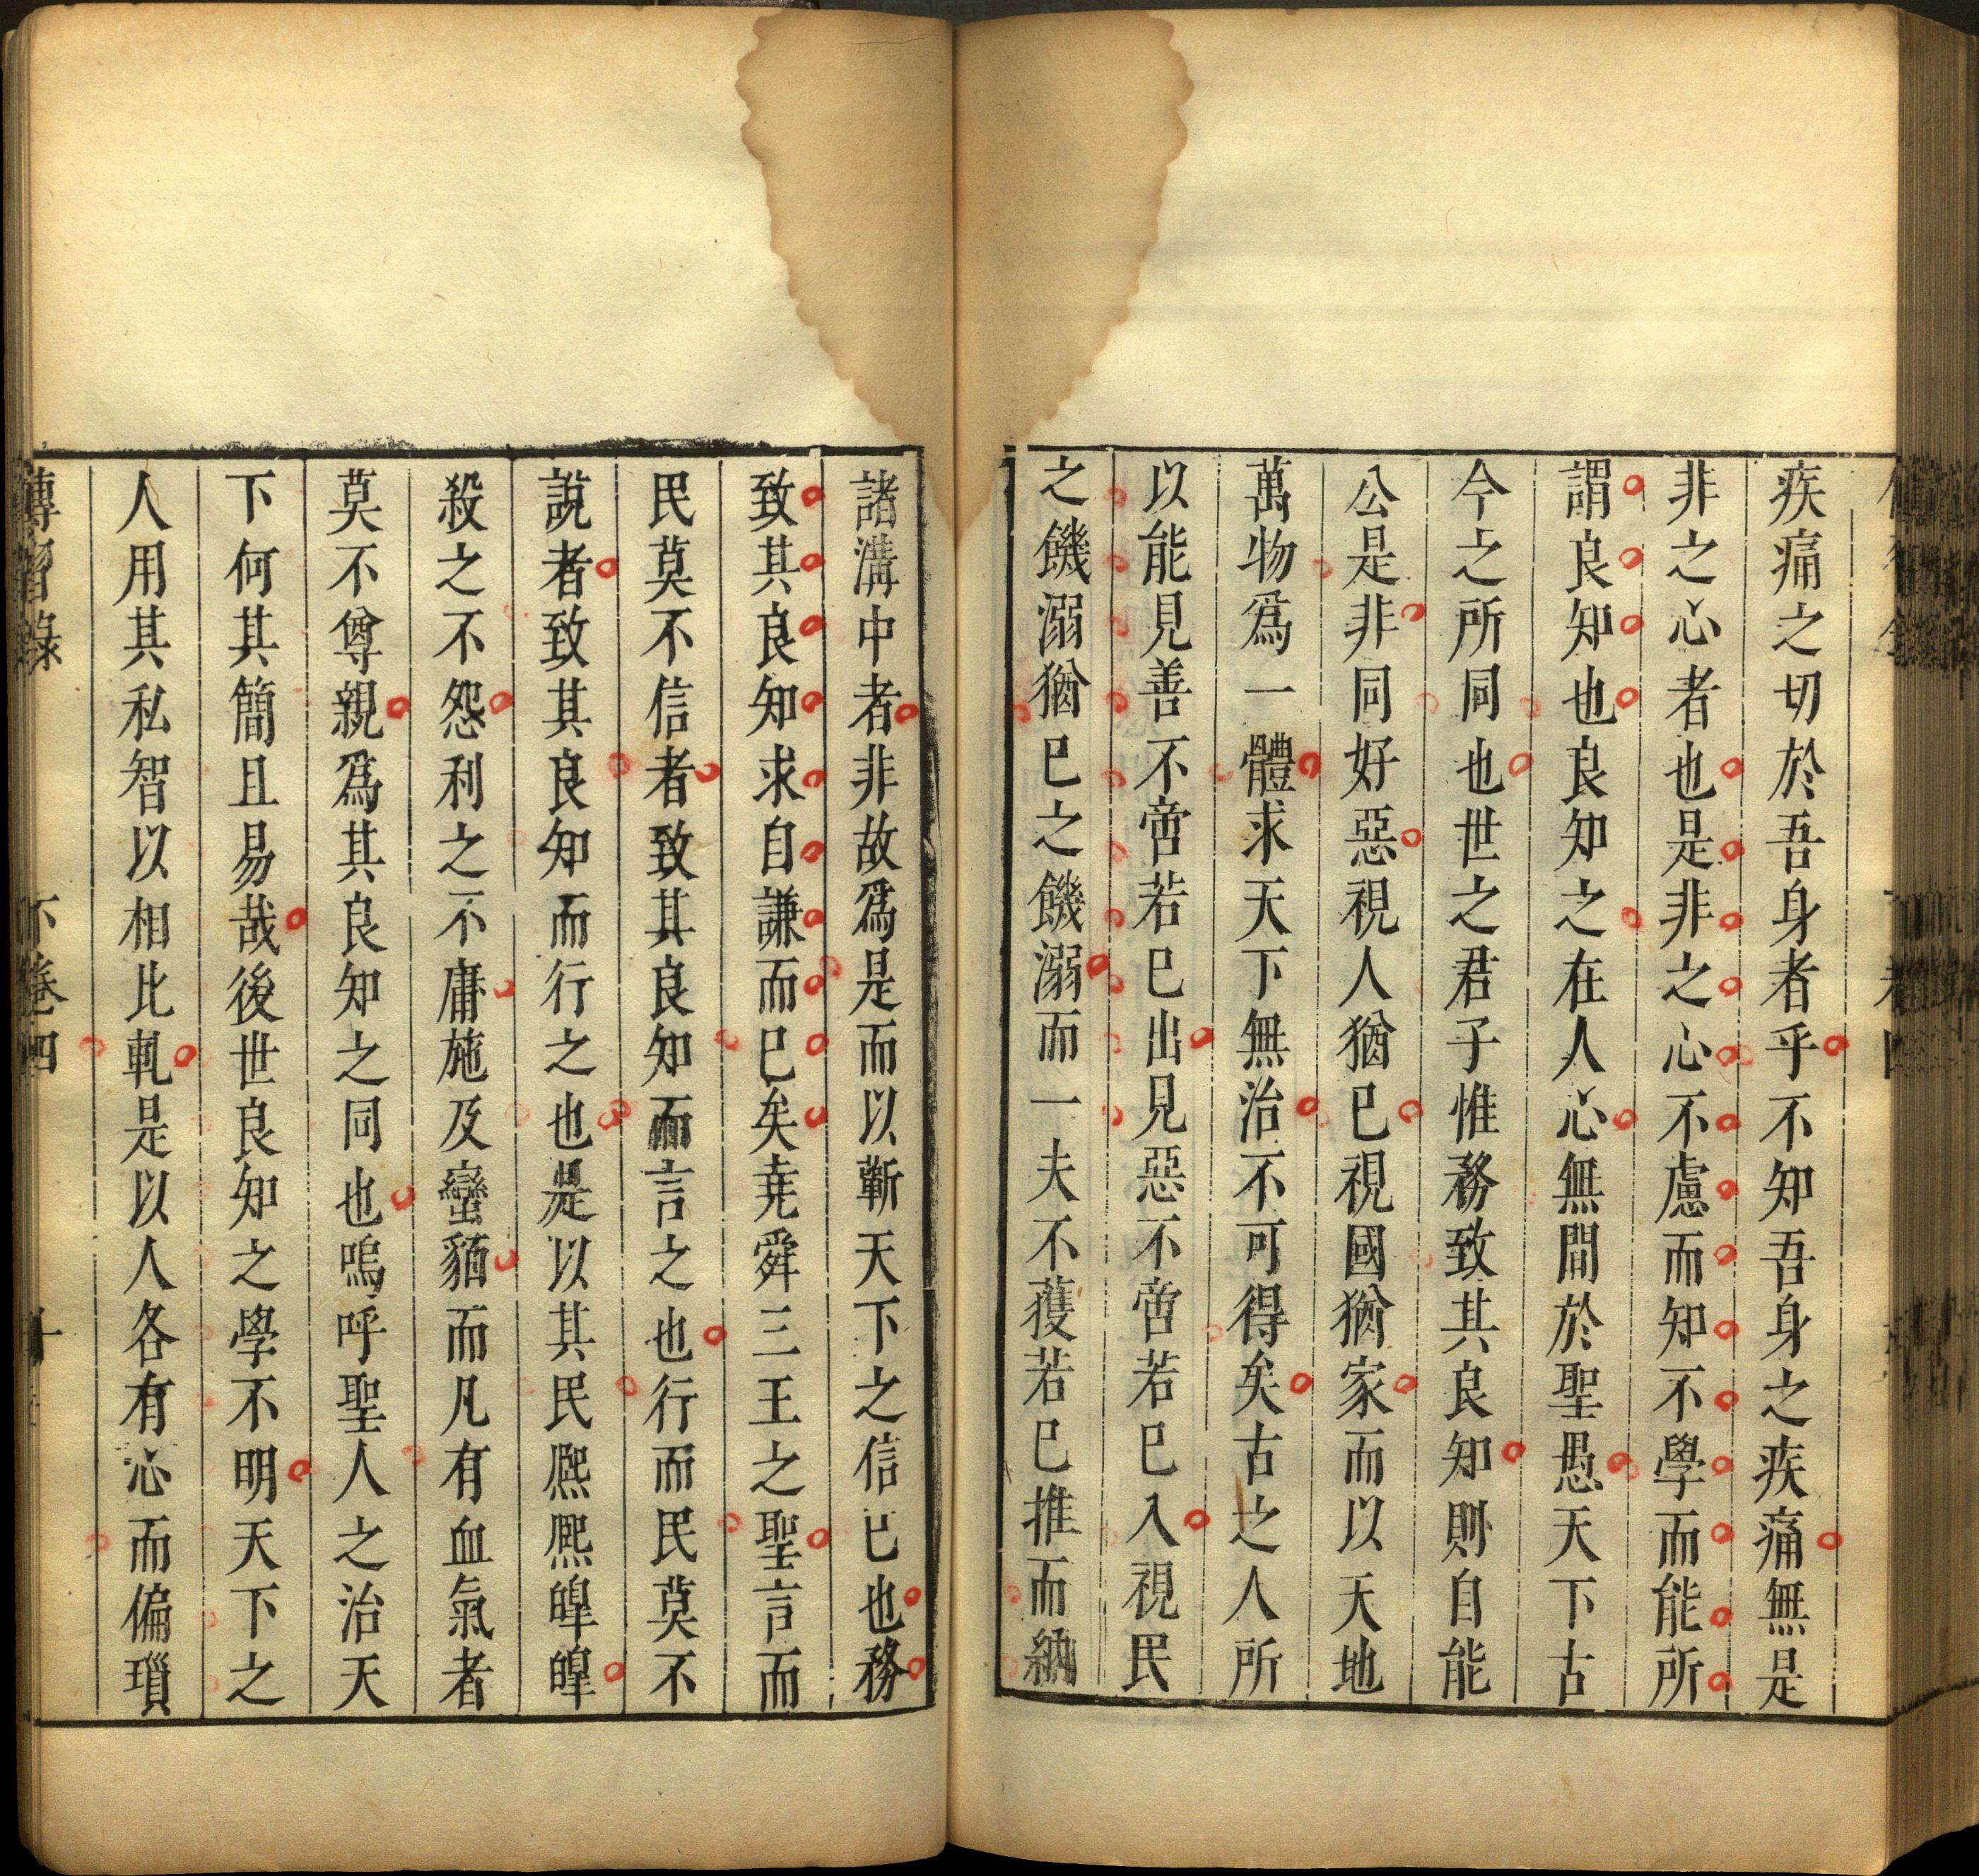 疾痛之切於吾身者乎不知吾身之疾痛無是
非之心者也是非之心不慮而知不學而能所
謂良知也良知之在人心無間於聖愚天下古
今之所同也世之君子惟務致其良知則自能
公是非同好惡視人猶已視國猶家而以天地
萬物爲一體求天下無治不可得矣古之人所
以能見善不啻若已出見惡不啻若已入視民
之饑溺猶已之饑溺而一夫不獲若已推而納
諸溝中者非故爲是而以蘄天下之信已也務
致其良知求自謙而已矣堯舜三王之聖言而
民莫不信者致其良知而言之也行而民莫不
說者致其良知而行之也是以其民熈熈皥皥
殺之不怨利之不庸施及蠻貊而凡有血氣者
莫不尊親爲其良知之同也嗚呼聖人之治天
下何其簡且易哉後世良知之學不明天下之
人用其私智以相比軋是以人各有心而偏瑣
傳習錄 下卷四 十